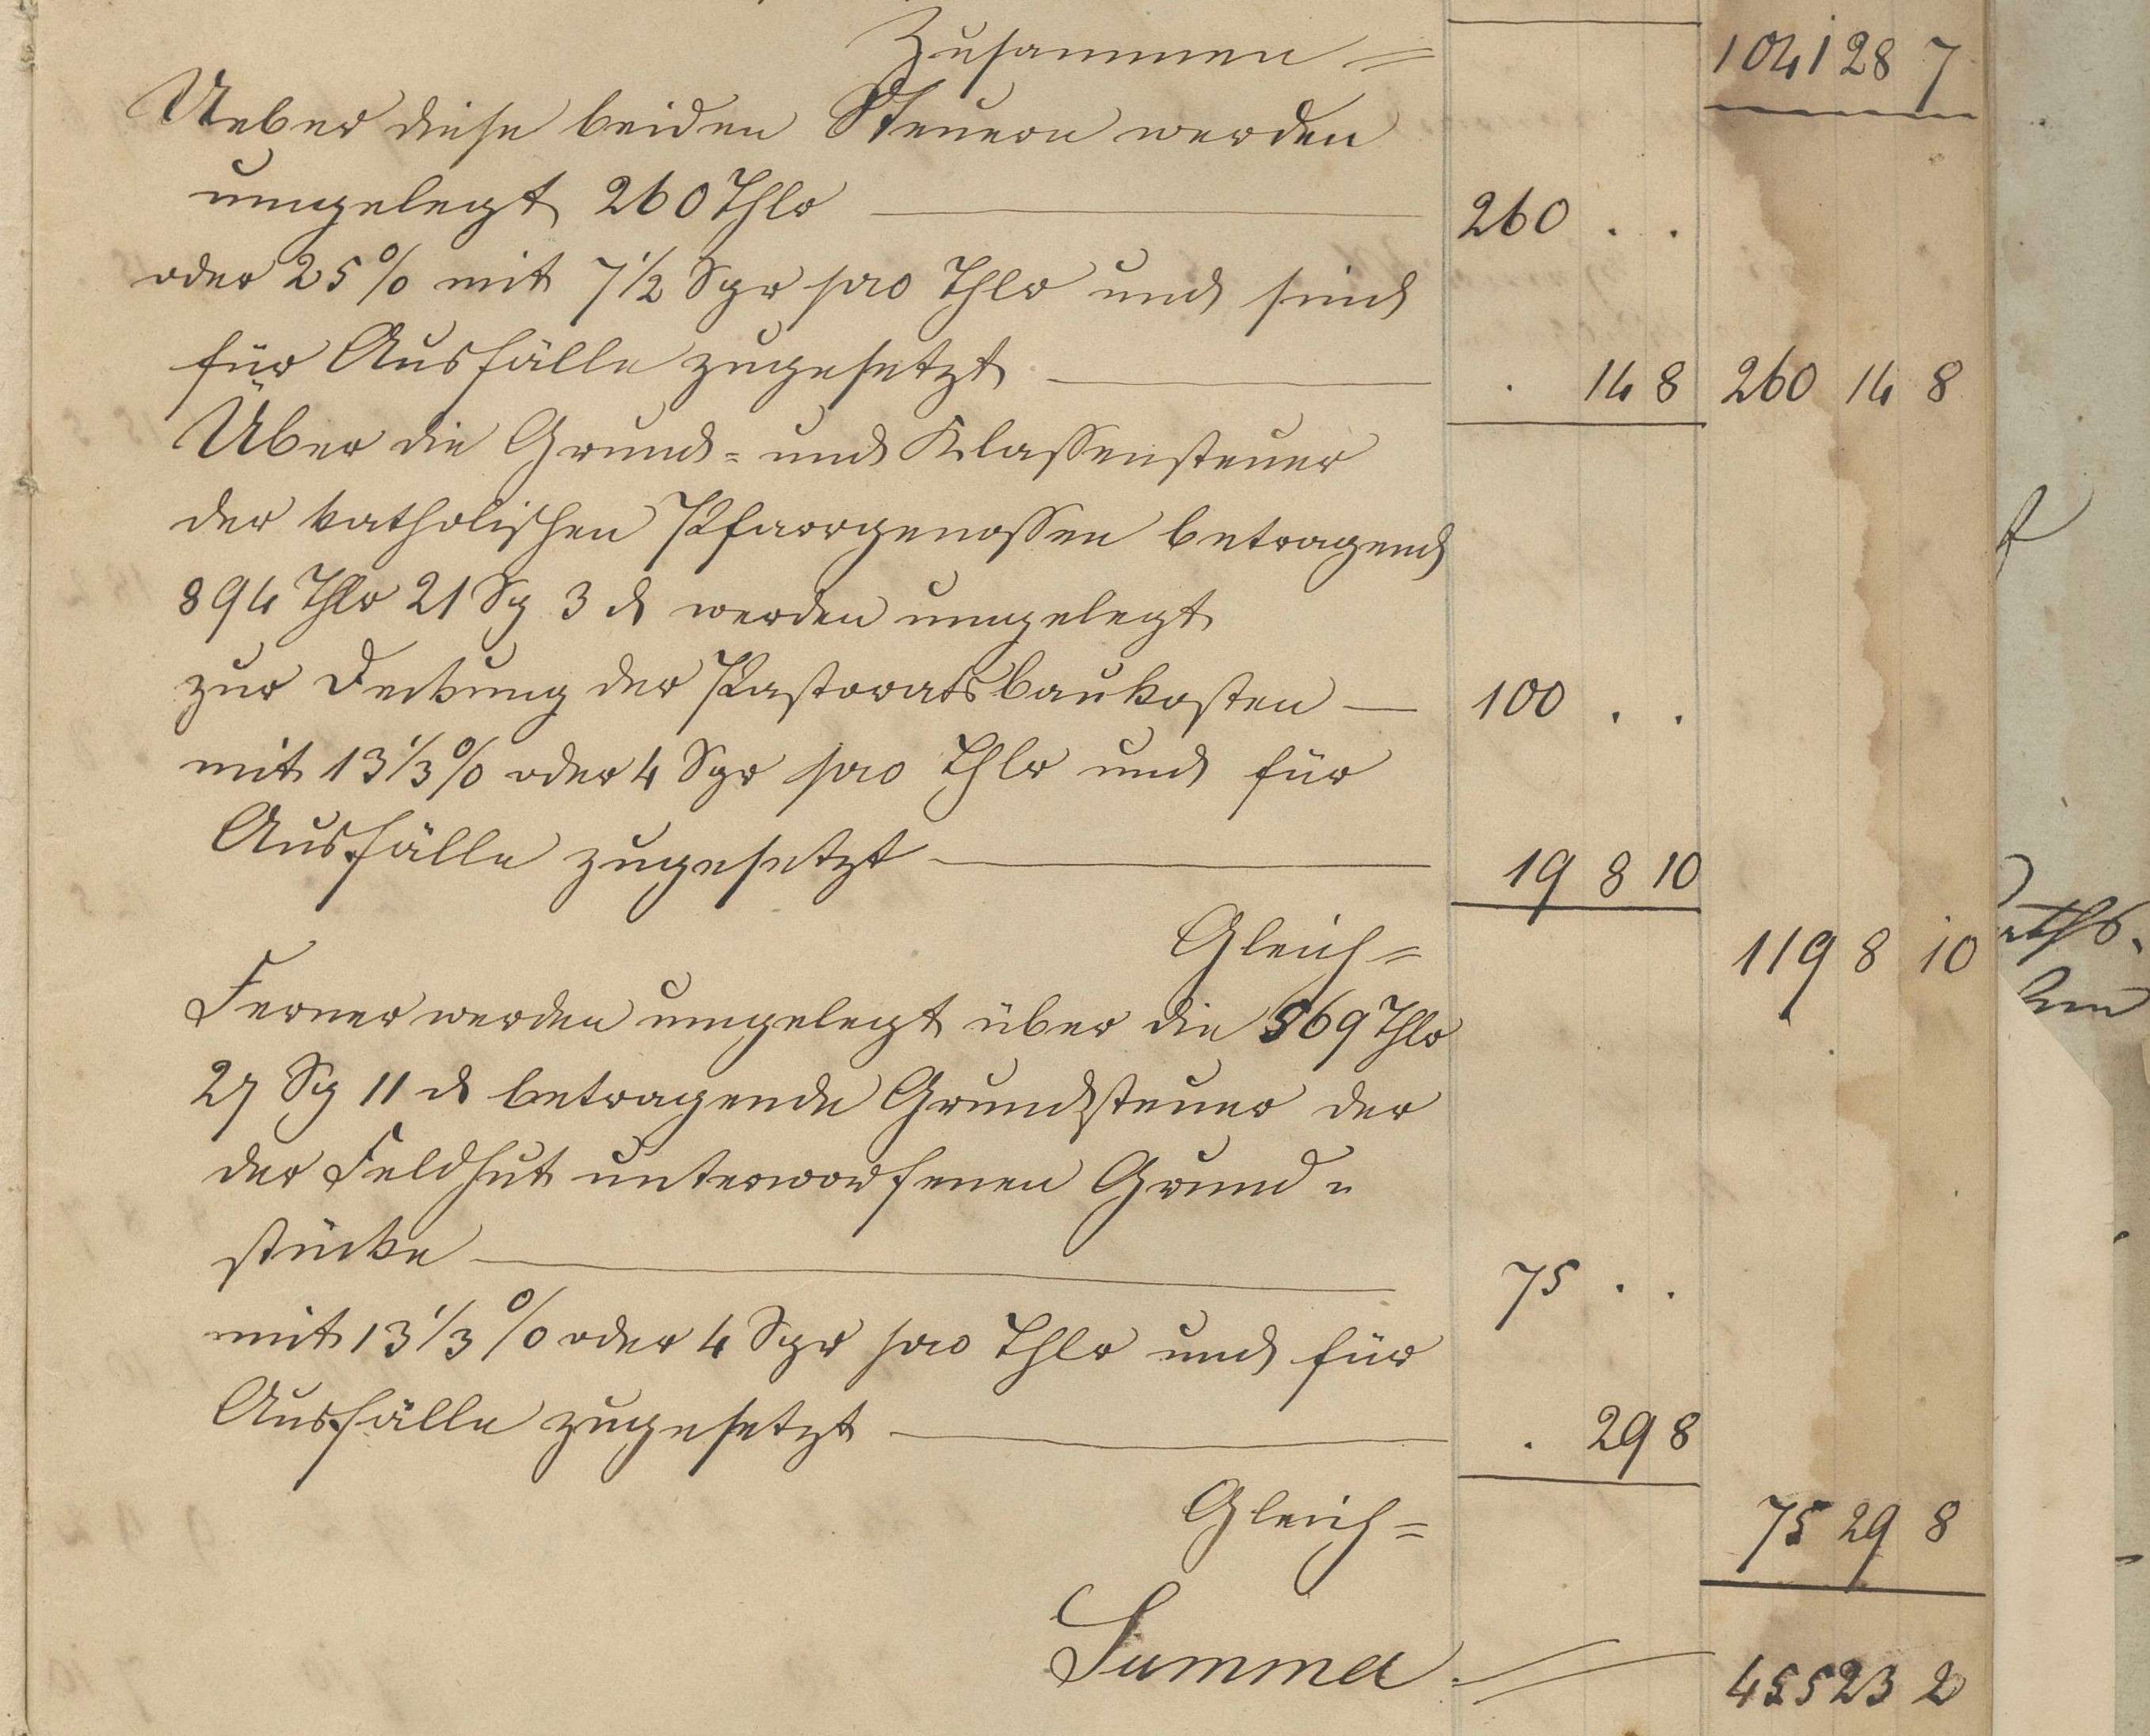 Zusammen = 1041 28 7
Ueber diese beiden Steuern werden
umgelegt 260 Thlr — 260 . .
oder 25 % mit 7 1/2 Sgr pro Thlr und sind
für Ausfälle zugesetzt — . 14 8 260 14 8
Über die Grund- und Klassensteuer
der katholischen Pfarrgenossen betragend
894 Thlr 21 Sg 3 d werden umgelegt
zur Deckung der Pastoratsbaukosten — 100 . .
mit 13 1/3 % oder 4 Sgr pro Thlr und für
Ausfälle zugesetzt — 19 8 10
Gleich = 119 8 10
Ferner werden umgelegt über die 569 Thlr
27 Sg 11 d betragende Grundsteuer der
der Feldhut unterworfenen Grund-
stücke — 75 . .
mit 13 1/3 % oder 4 Sgr pro Thlr und für
Ausfälle zugesetzt — . 29 8
Gleich = 75 29 8
Summa = 455 23 2